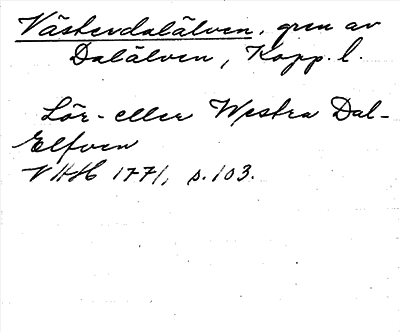 Västerdalälven, gren av
Dalälven, Kopp. l.
Lör- eller Westra Dal-
Elfven
VHH 1771, s. 103.